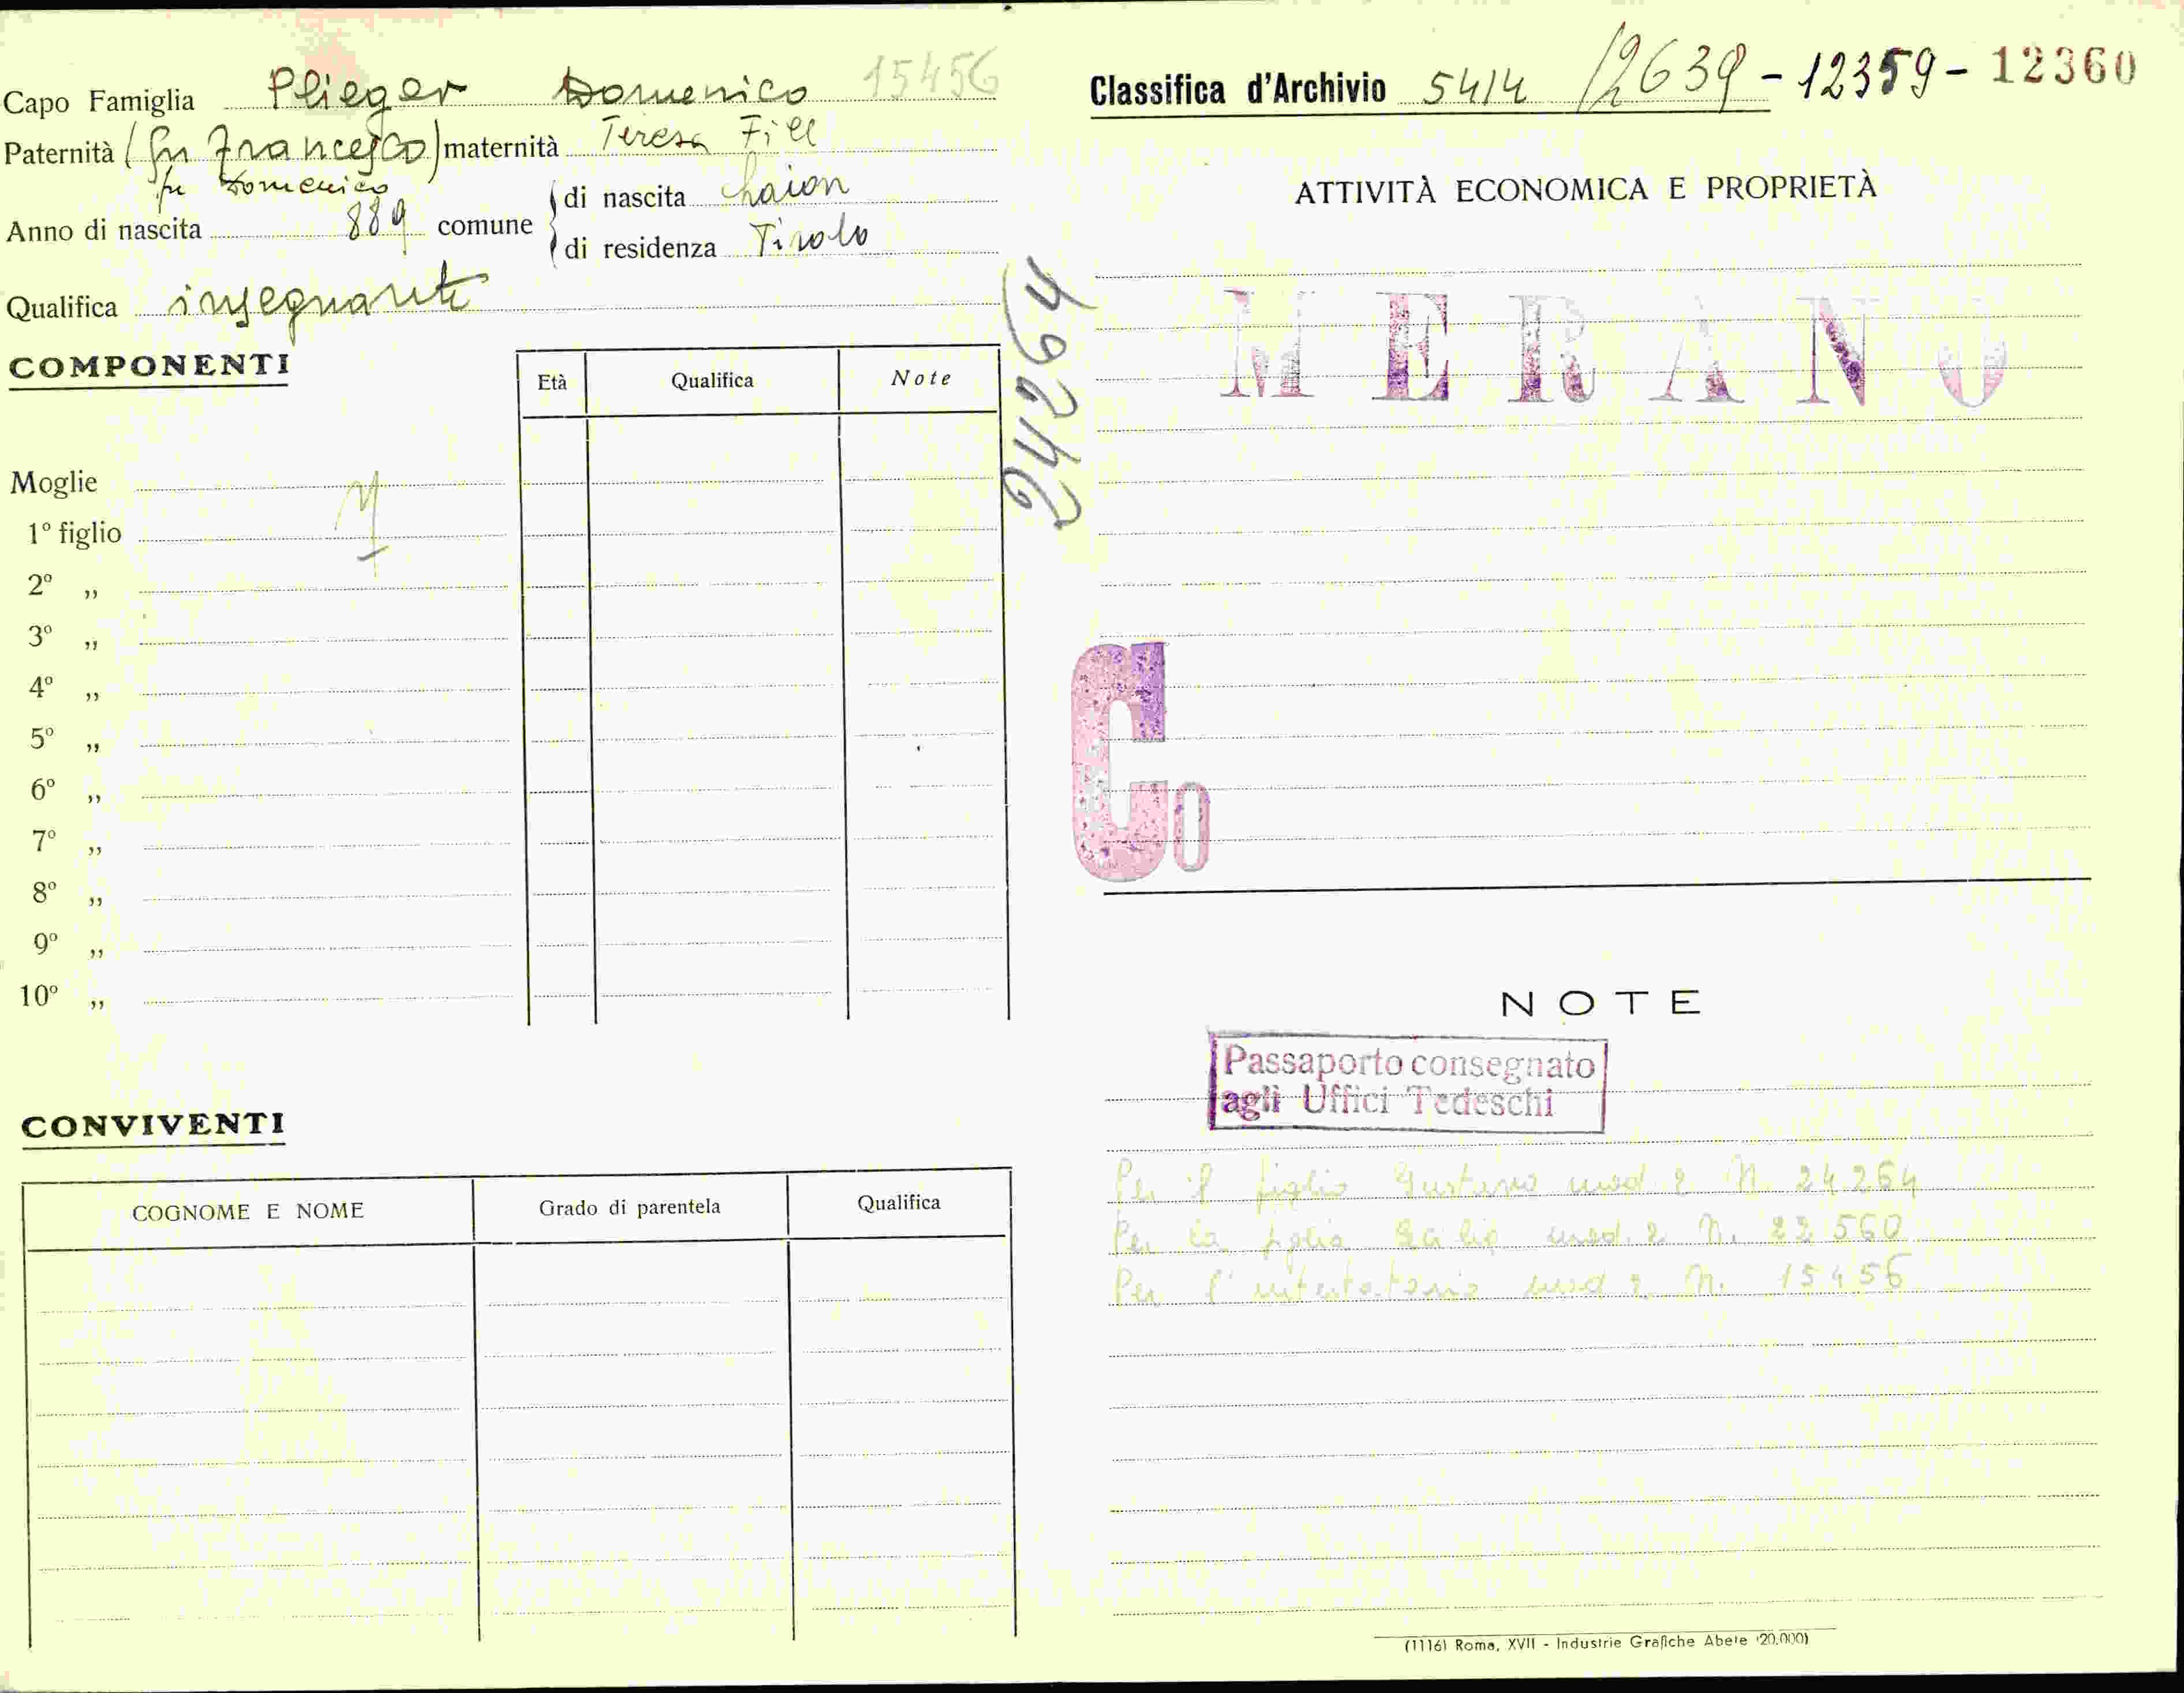 Capo Famiglia Plieger Domenico 15456
Paternità (fu Francesco) maternità Teresa Fill
fu Domenico
Anno di nascita 889 comune di nascita Laion
di residenza Tirolo
Qualifica insegnante
COMPONENTI
Età Qualifica Note
Moglie
1º figlio
2º „
3º „
4º „
5º „
6º „
7º „
8º „
9º „
10º „
CONVIVENTI
COGNOME E NOME Grado di parentela Qualifica
24264
Classifica d'Archivio 5414 12639 - 12359 - 12360
ATTIVITÀ ECONOMICA E PROPRIETÀ
MERANO
Co
NOTE
Passaporto consegnato
agli Uffici Tedeschi
Per il figlio Gustavo mod. 2 N. 24264
Per la figlia mod. 2 N. 22560
Per l'intestatario mod 2 N. 15456
(1116) Roma, XVII - Industrie Grafiche Abete (20.000)